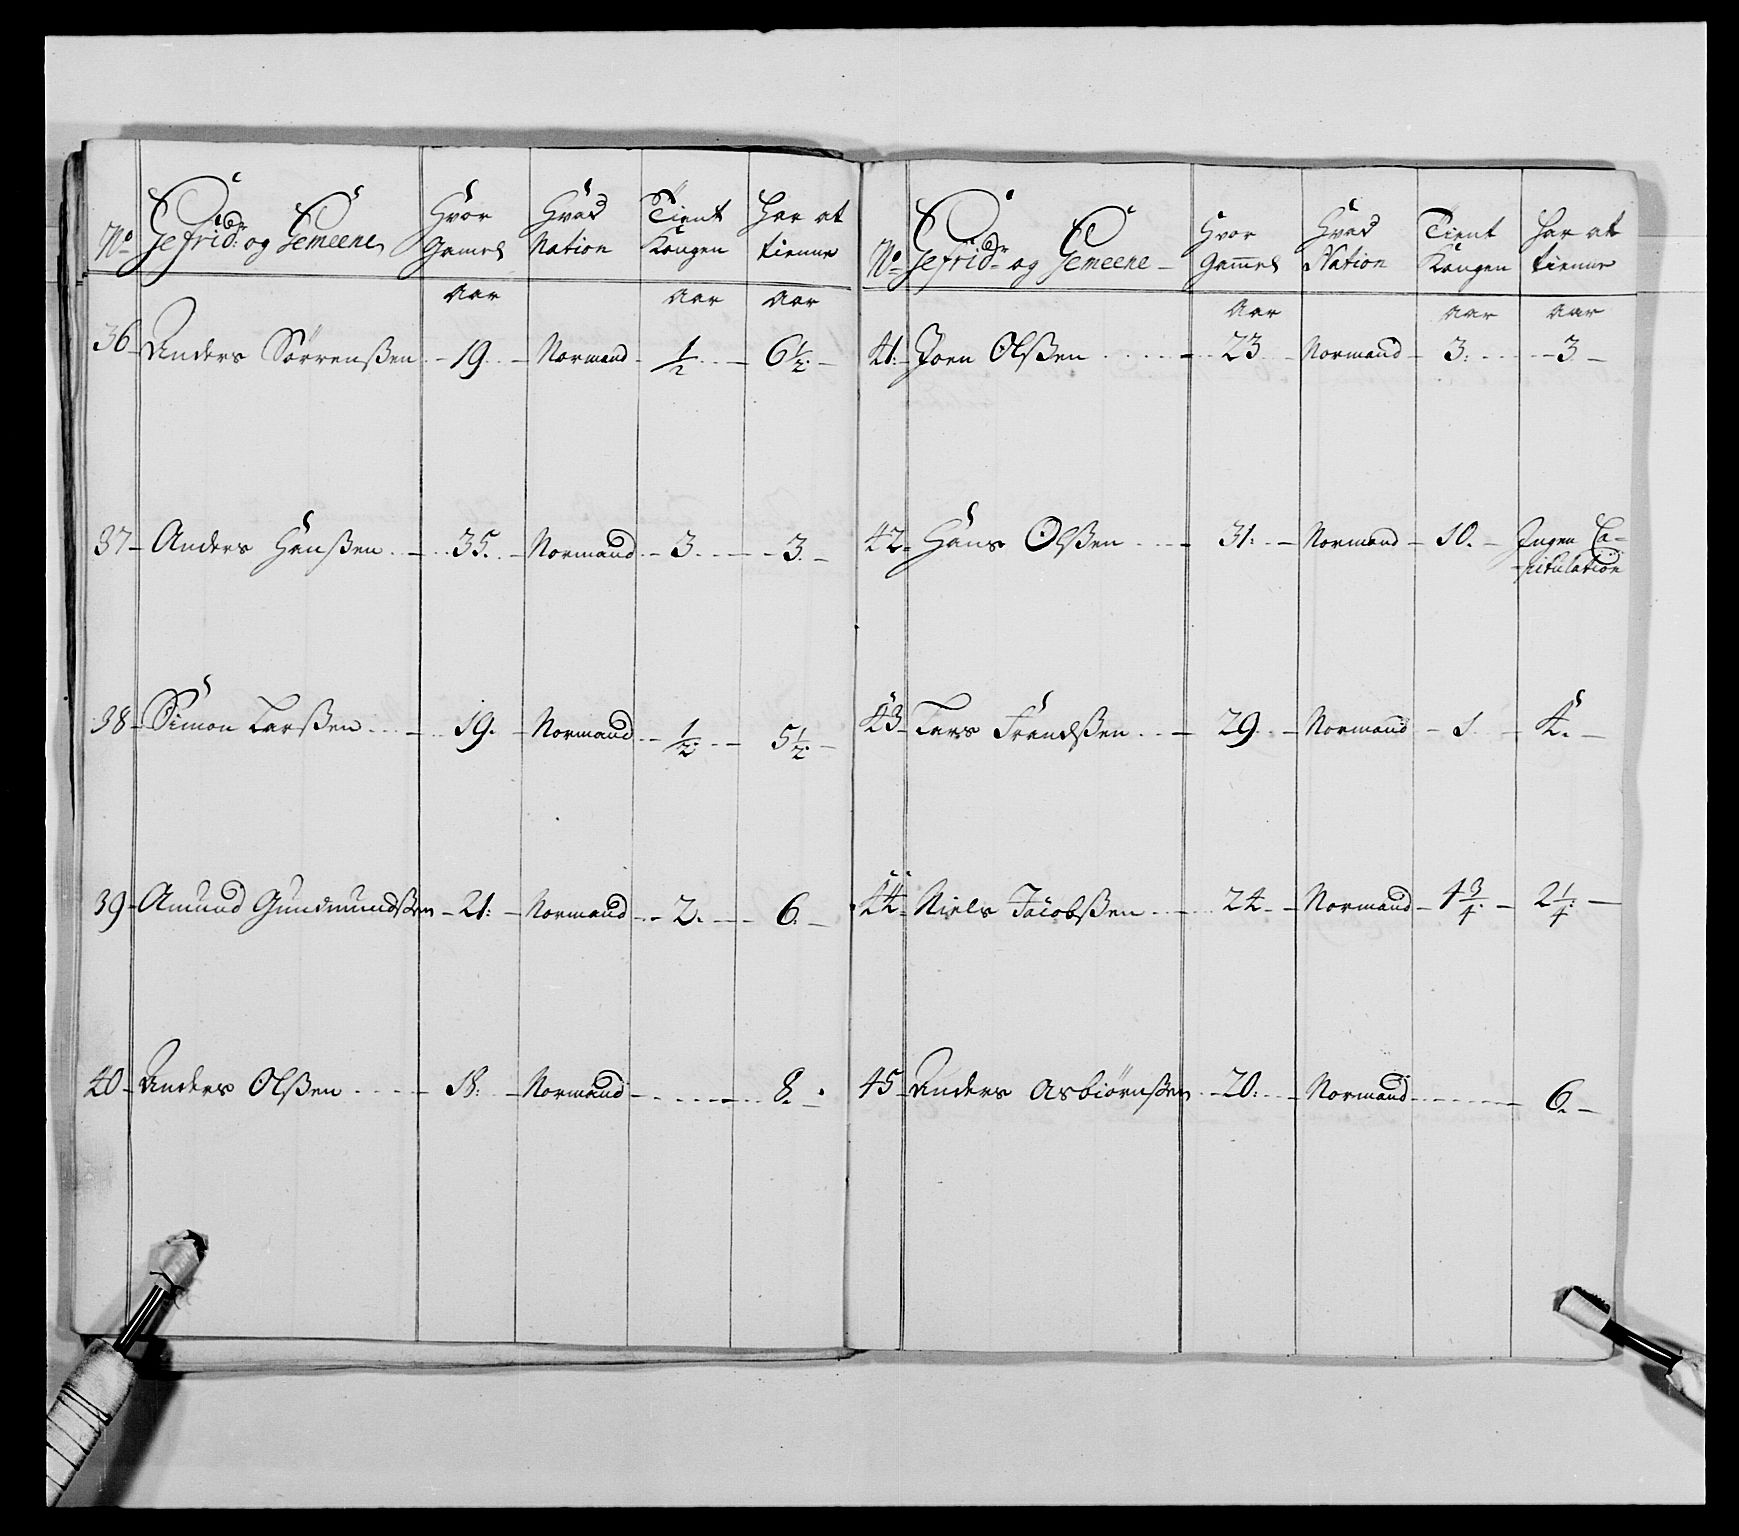 No Gefrid: og Gemeene Hvor Gamel Hvad Nation Tient Kongen Har at tienne
Aar Aar Aar
36 Anders Sörrenßen 19. Normand 1/2 6 1/2.
37 Anders Hanßen 35. Normand 3. 3.
38 Simon Larßen 19. Normand 1/2. 5 1/2.
39 Amund Gundmundßen 21. Normand 2. 6.
40 Anders Olßen 18. Normand 8.
No Gefridr og Gemeene Hvor Gam̄el Hvad Nation Tient Kongen Har at tienne
Aar Aar Aar
41. Joen Olßen 23 Normand 3. 3
42 Hans Olßen 31. Normand 10. Ingen Ca=
pitulation
43 Lars Frandßen 29. Normand 1. 4.
44 Niels Jacobßen 24 Normand 4 3/4. 2 1/4.
45 Anders Asbiörnßen 20. Normand 6.